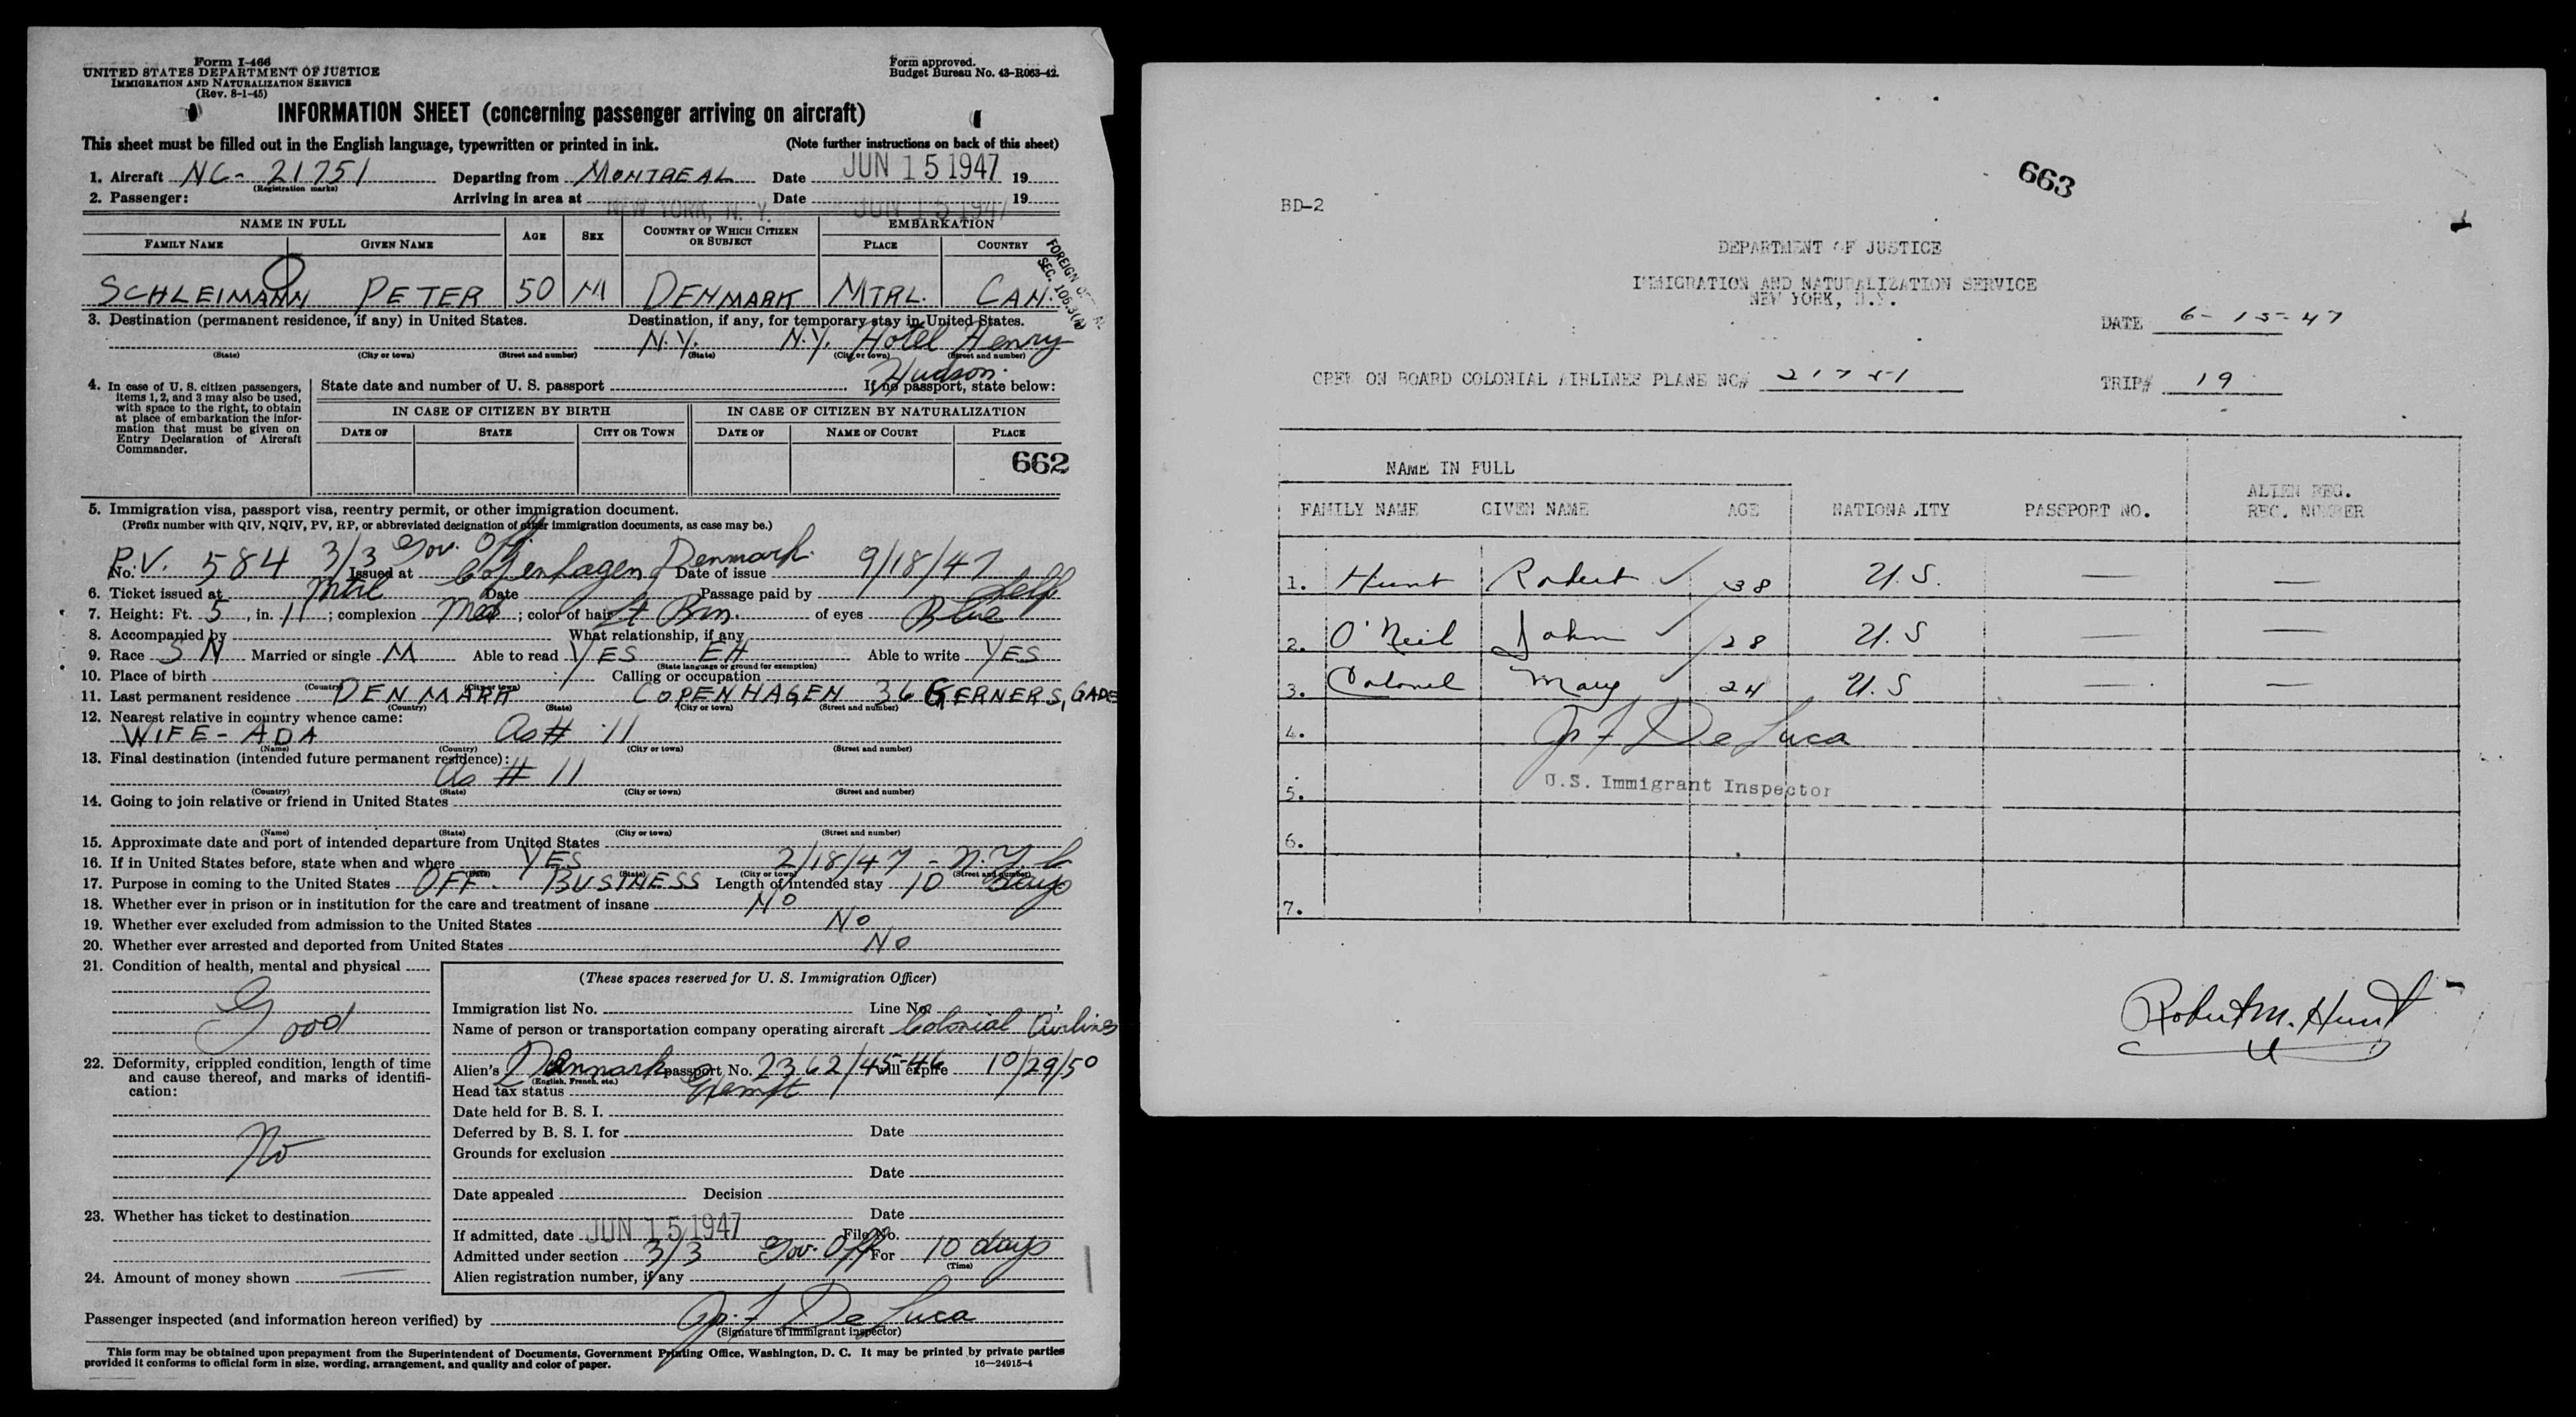 Form I-466
UNITED STATES DEPARTMENT OF JUSTICE
IMMIGRATION AND NATURALIZATION SERVICE
(Rev. 8-1-45)
Form approved.
Budget Bureau No. 43-R063-42.
INFORMATION SHEET (concerning passenger arriving on aircraft)
This sheet must be filled out in the English language, typewritten or printed in ink. (Note further instructions on back of this sheet)
1. Aircraft NC-21751 Departing from MONTREAL Date JUN 15 1947 19
(Registration marks)
2. Passenger: Arriving in area at NEW YORK, N. Y. Date JUN 15 1947 19
NAME IN FULL AGE SEX COUNTRY OF WHICH CITIZEN OR SUBJECT EMBARKATION
FAMILY NAME GIVEN NAME PLACE COUNTRY
SCHLEIMANN PETER 50 M DENMARK MTRL. CAN.
FOREIGN
SEC. 1063(A)
3. Destination (permanent residence, if any) in United States. Destination, if any, for temporary stay in United States.
N.Y. N.Y. Hotel Henry Hudson
(State) (City or town) (Street and number) (State) (City or town) (Street and number)
4. In case of U. S. citizen passengers, items 1, 2, and 3 may also be used, with space to the right, to obtain at place of embarkation the information that must be given on Entry Declaration of Aircraft Commander.
State date and number of U. S. passport If no passport, state below:
IN CASE OF CITIZEN BY BIRTH IN CASE OF CITIZEN BY NATURALIZATION
DATE OF STATE CITY OR TOWN DATE OF NAME OF COURT PLACE
662
5. Immigration visa, passport visa, reentry permit, or other immigration document.
(Prefix number with QIV, NQIV, PV, RP, or abbreviated designation of other immigration documents, as case may be.)
No. P.V. 584 3/3 Gov. Off. Issued at Copenhagen Denmark. Date of issue 9/18/47
6. Ticket issued at Mtrl Date Passage paid by Self
7. Height: Ft. 5, in. 11; complexion Med; color of hair Lt Brn. of eyes Blue
8. Accompanied by What relationship, if any
9. Race 3 N Married or single M Able to read YES EH Able to write YES
(State language or ground for exemption)
10. Place of birth Calling or occupation
(Country) (City or town)
11. Last permanent residence DENMARK COPENHAGEN 36 GERNERS, GADE
(Country) (State) (City or town) (Street and number)
12. Nearest relative in country whence came:
WIFE - ADA As # 11
(Name) (Country) (City or town) (Street and number)
13. Final destination (intended future permanent residence):
As # 11
(Country) (State) (City or town) (Street and number)
14. Going to join relative or friend in United States
(Name) (State) (City or town) (Street and number)
15. Approximate date and port of intended departure from United States
16. If in United States before, state when and where YES 2/18/47 - N.Y.
(Date) (State) (City or town) (Street and number)
17. Purpose in coming to the United States OFF. BUSINESS Length of intended stay 10 days
18. Whether ever in prison or in institution for the care and treatment of insane NO
19. Whether ever excluded from admission to the United States NO
20. Whether ever arrested and deported from United States NO
21. Condition of health, mental and physical
Good
22. Deformity, crippled condition, length of time and cause thereof, and marks of identification:
No
23. Whether has ticket to destination
24. Amount of money shown
(These spaces reserved for U. S. Immigration Officer)
Immigration list No. Line No.
Name of person or transportation company operating aircraft Colonial Airlines
Alien's Denmark passport No. 2362/45-46 will expire 10/29/50
(English, French, etc.)
Head tax status Exempt
Date held for B. S. I.
Deferred by B. S. I. for Date
Grounds for exclusion
Date
Date appealed Decision
Date
If admitted, date JUN 15 1947 File No.
Admitted under section 3/3 Gov. Off For 10 days
(Time)
Alien registration number, if any
Passenger inspected (and information hereon verified) by Jos F De Luca
(Signature of immigrant inspector)
This form may be obtained upon prepayment from the Superintendent of Documents, Government Printing Office, Washington, D. C. It may be printed by private parties
provided it conforms to official form in size, wording, arrangement, and quality and color of paper. 16—24915-4
663
BD-2
DEPARTMENT OF JUSTICE
IMMIGRATION AND NATURALIZATION SERVICE
NEW YORK, N.Y.
DATE 6-15-47
CREW ON BOARD COLONIAL AIRLINES PLANE NC# 21751 TRIP# 19
NAME IN FULL
FAMILY NAME GIVEN NAME AGE NATIONALITY PASSPORT NO. ALIEN REG. REC. NUMBER
1. Hunt Robert 38 U.S. — —
2. O'Neil John 28 U.S — —
3. Colonel Mary 24 U.S — —
4. Jos F De Luca
5. U.S. Immigrant Inspector
6.
7.
Robert M. Hunt